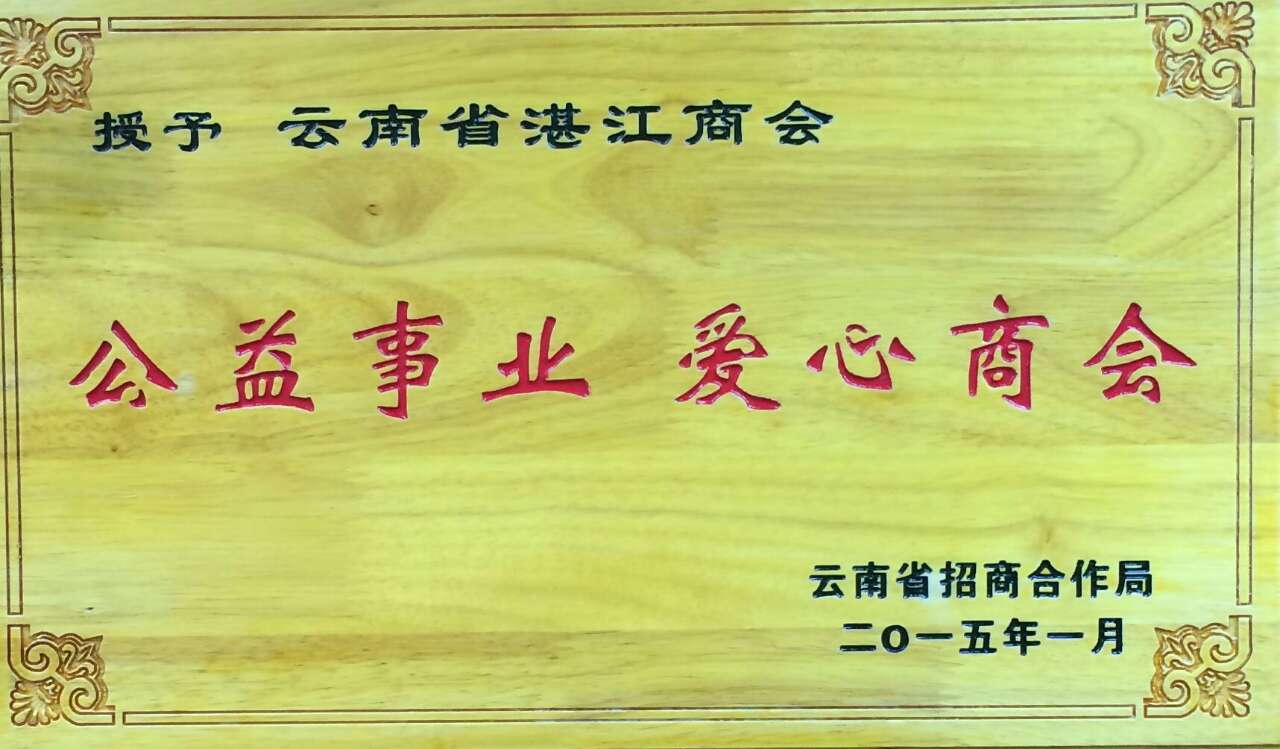 授予 云南省湛江商会
公益事业 爱心商会
云南省招商合作局
二O一五年一月